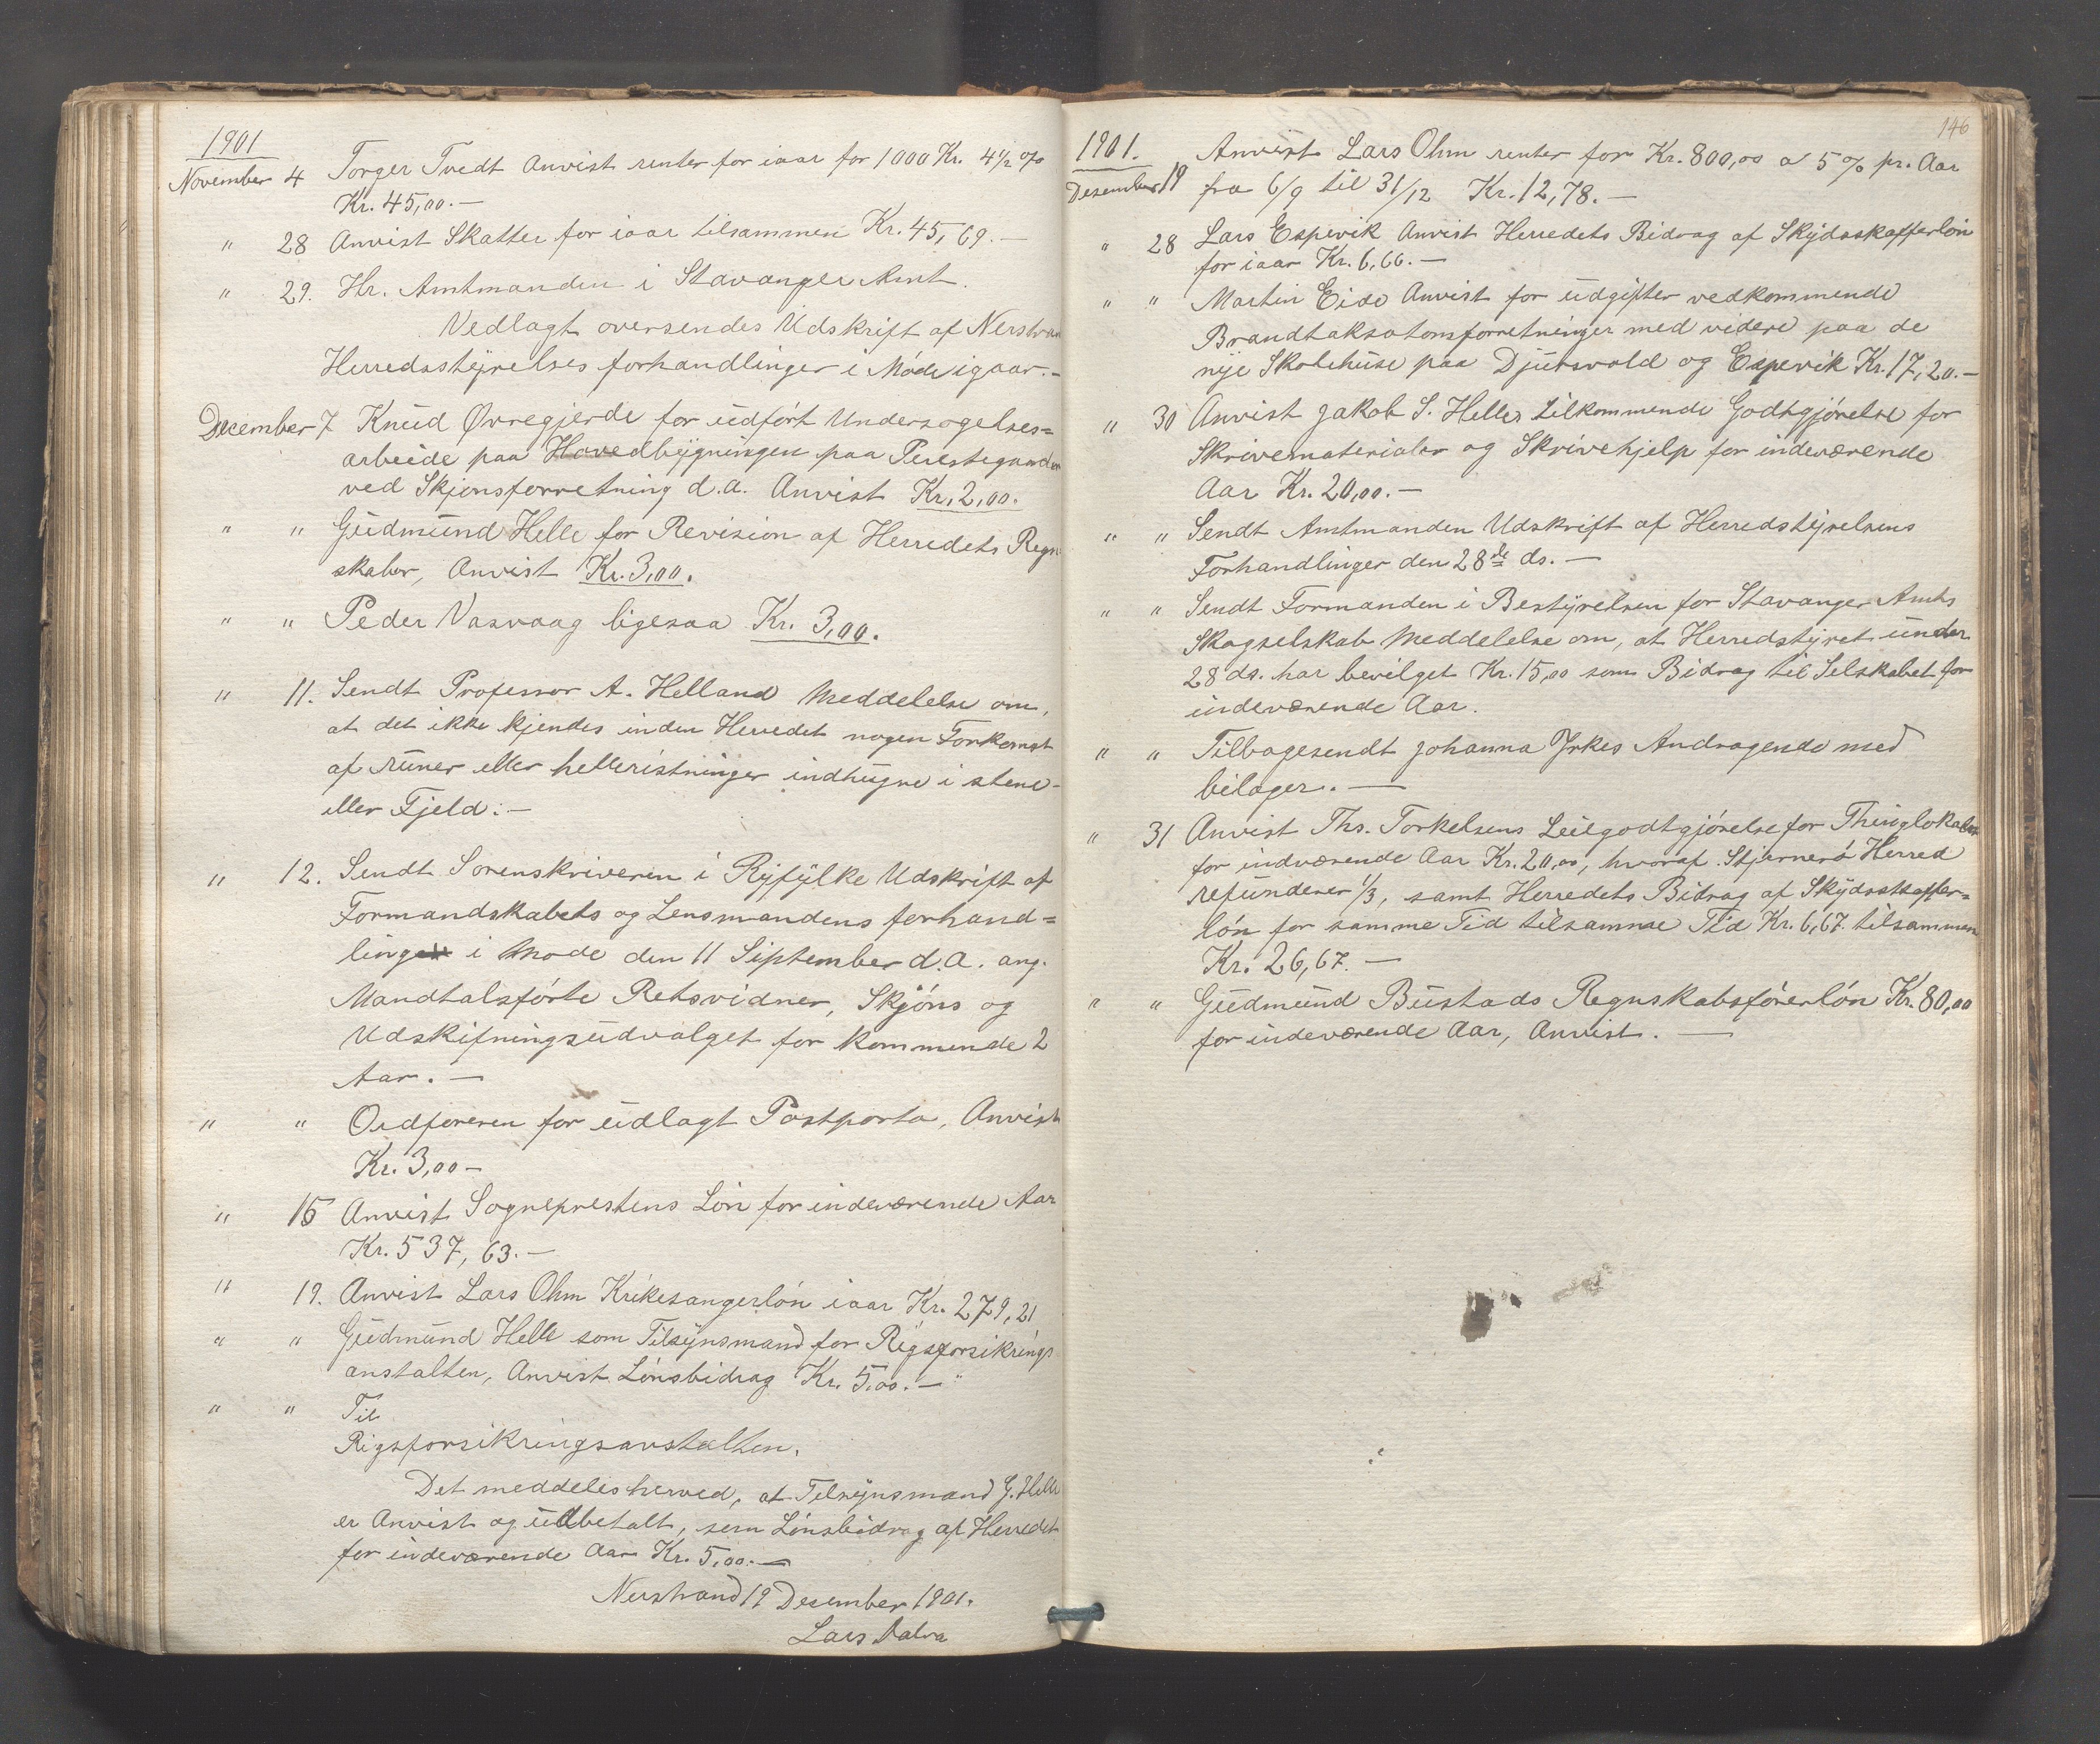 1901
November 4 Torger Tvedt Anvist renter for iaar for 1000 Kr. 4 1/2 %
Kr. 45,00.—
" 28 Anvist Skatter for iaar tilsammen Kr. 45,69.—
" 29. Hr. Amtmanden i Stavanger Amt.
Vedlagt oversendes Udskrift af Nerstran
Herredsstyrelses forhandlinger i Möde igaar.—
December 7 Knud Øvregjerde for udfört Undersøgelses=
arbeide paa Hovedbygningen paa Prestegaarden
ved Skjønsforretning d.a. Anvist Kr. 2,00.
" " Gudmund Helle for Revision af Herredets Regn
skaber, Anvist Kr. 3,00.
" " Peder Vasvaag ligesaa Kr. 3,00.
" 11. Sendt Professor A. Helland Meddelelse om,
at det ikke kjendes inden Herredet nogen Forkomst
af runer eller helleristninger indhugne i stene
eller Fjeld.—
" 12. Sendt Sorenskriveren i Ryfylke Udskrift af
Formandskabets og Lensmandens forhand=
linger i Møde den 11 September d.a. ang.
Mandtalsförte Retsvidner, Skjöns og
Udskifningsudvalget for kommende 2
Aar.—
" " Ordføreren for udlagt Postporto, Anvist
Kr. 3,00—
" 16 Anvist Sogneprestens Lön for indeværende Aar
Kr. 537,63.—
" 19. Anvist Lars Ohm Kirkesangerlön iaar Kr. 279,21
" " Gudmund Helle som Tilsynsmand for Rigsforsikrings
anstalten, Anvist Lönsbidrag Kr. 5,00.—
" " Til
Rigsforsikringsanstalten.
Det meddeles herved, at Tilsynsmand G. Helle
er Anvist og udbetalt, som Lönsbidrag af Herredet
for indeværende Aar Kr. 5,00.—
Nerstrand 19 Desember 1901.
Lars Dalva
146
1901.
Desember 19 Anvist Lars Ohm renter for Kr. 800,00 a 5 % pr. Aar
fra 6/9 til 31/12 Kr. 12,78.—
" 28 Lars Espevik Anvist Herredets Bidrag af Skydsskafferlön
for iaar Kr. 6,66.—
" " Martin Eide Anvist for udgifter vedkommende
Brandtakstomforretninger med videre paa de
nye Skolehuse paa Djursvold og Espevik Kr. 17,20.—
" 30 Anvist Jakob S. Helles tilkommende Godtgjörelse for
Skrivematerialer og Skrivehjelp for indeværende
Aar Kr. 20,00.—
" " Sendt Amtmanden Udskrift af Herredstyrelsens
Forhandlinger den 28de ds.—
" " Sendt Formanden i Bestyrelsen for Stavanger Amts
Skogselskab Meddelelse om, at Herredstyret under
28 ds. har bevilget Kr. 15,00 som Bidrag til Selskabet for
indeværende Aar.
" " Tilbagesendt Johanna Yrkes Andragende med
bilager.—
" 31 Anvist Ths. Torkelsens Leiegodtgjörelse for Thinglokaler
for indværende Aar Kr. 20,00, hvoraf Stjernerö Herred
refunderer 1/3, samt Herredets Bidrag af Skydsskaffer=
lön for samme Tid tilsamme Tid Kr. 6,67. tilsammen
Kr. 26,67.—
" " Gudmund Bustads Regnskabsförerlön Kr. 80,00
for indeværende Aar, Anvist.—